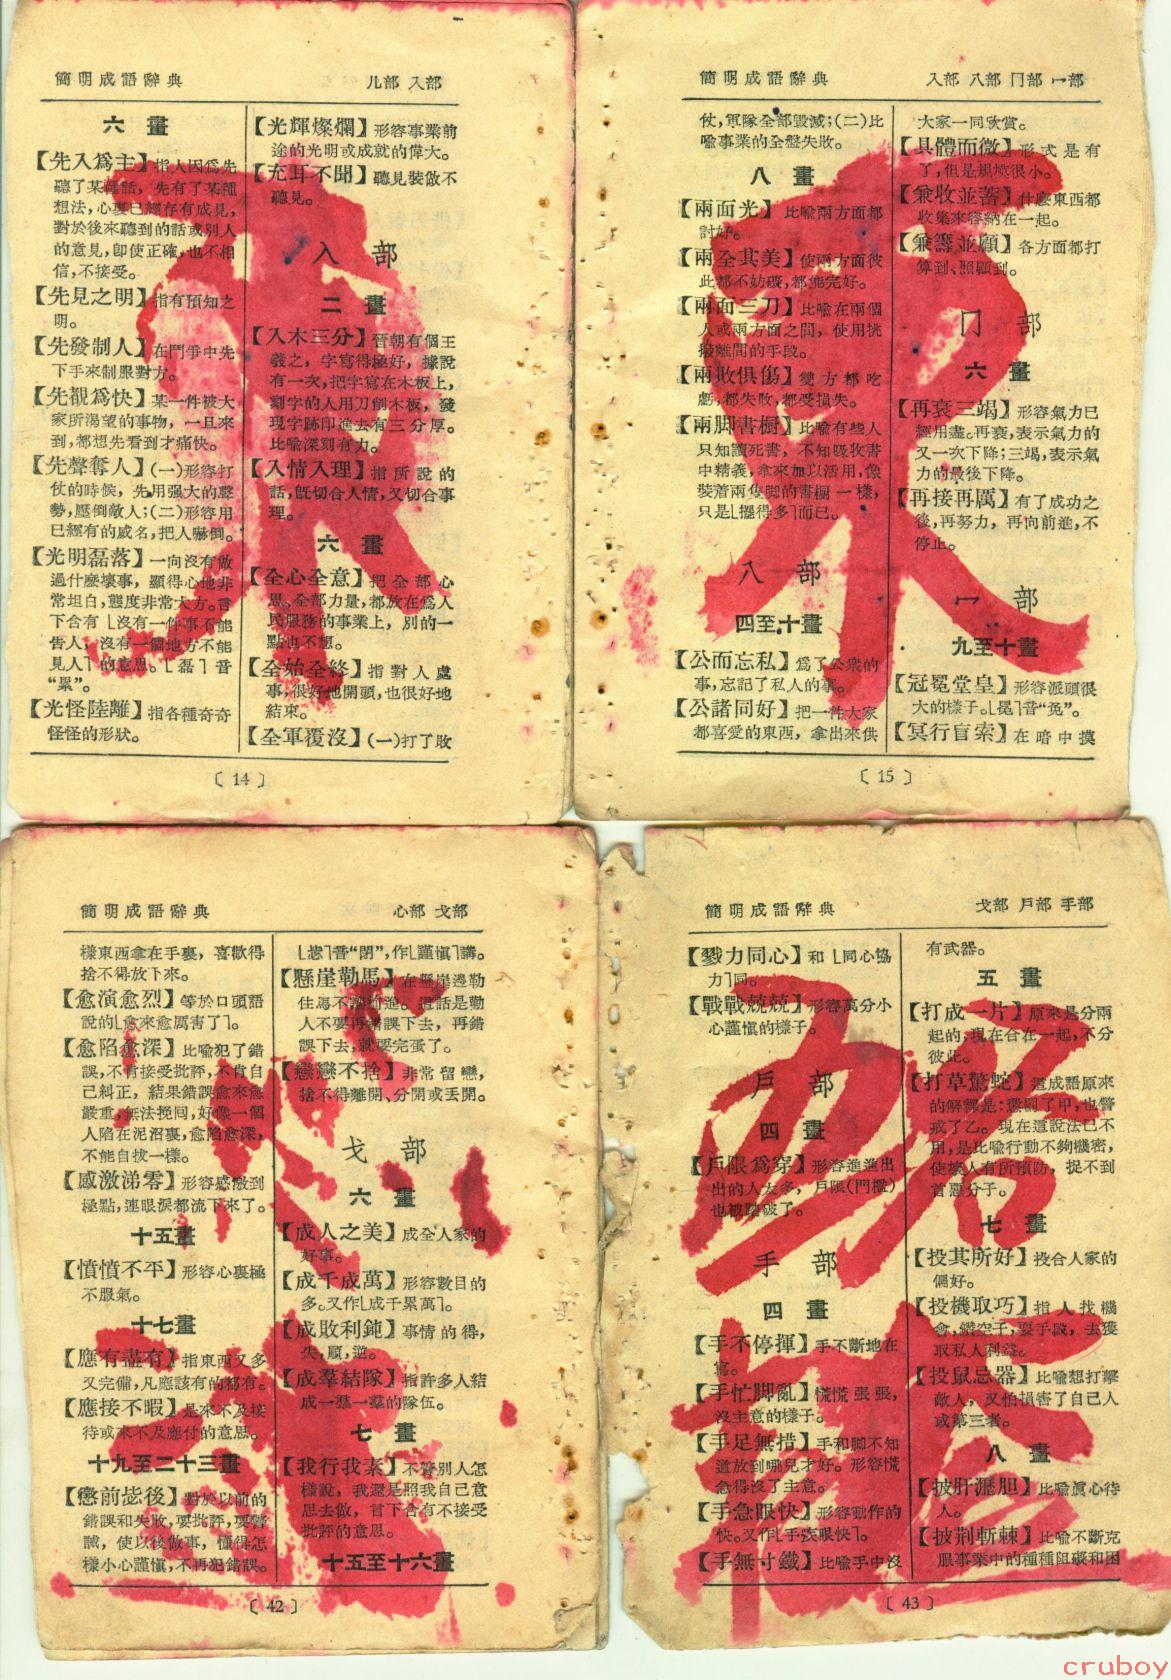 簡明成語辭典
儿部 入部
六 畫
【先入爲主】指人因爲先
聽了某種話，先有了某種
想法，心裏已經存有成見，
對於後來聽到的話或別人
的意見，卽使正確，也不相
信，不接受。
【先見之明】指有預知之
明。
【先發制人】在鬥爭中先
下手來制服對方。
【先覩爲快】某一件被大
家所渴望的事物，一旦來
到，都想先看到才痛快。
【先聲奪人】(一)形容打
仗的時候，先用强大的聲
勢，壓倒敵人；(二)形容用
已經有的威名，把人嚇倒。
【光明磊落】一向沒有做
過什麽壞事，顯得心地非
常坦白，態度非常大方。言
下含有「沒有一件事不能
告人，沒有一個地方不能
見人」的意思。「磊」音
“累”。
【光怪陸離】指各種奇奇
怪怪的形狀。
【光輝燦爛】形容事業前
途的光明或成就的偉大。
【充耳不聞】聽見裝做不
聽見。
入 部
二 畫
【入木三分】晉朝有個王
羲之，字寫得極好，據說
有一次，把字寫在木板上，
刻字的人用刀削木板，發
現字跡印進去有三分厚。
比喩深刻有力。
【入情入理】指所說的
話，旣切合人情，又切合事
理。
六 畫
【全心全意】把全部心
思、全部力量，都放在爲人
民服務的事業上，別的一
點也不想。
【全始全終】指對人處
事，很好地開頭，也很好地
結束。
【全軍覆沒】(一)打了敗
〔14〕
簡明成語辭典
入部 八部 冂部 冖部
仗，軍隊全部毀滅；(二)比
喩事業的全盤失敗。
八 畫
【兩面光】比喩兩方面都
討好。
【兩全其美】使兩方面彼
此都不妨礙，都能完好。
【兩面三刀】比喩在兩個
人或兩方面之間，使用挑
撥離間的手段。
【兩敗俱傷】雙方都吃
虧，都失敗，都受損失。
【兩脚書櫥】比喩有些人
只知讀死書，不知吸收書
中精義，拿來加以活用，像
裝着兩隻脚的書櫥一樣，
只是「擺得多」而已。
八 部
四至十畫
【公而忘私】爲了公衆的
事，忘記了私人的事。
【公諸同好】把一件大家
都喜愛的東西，拿出來供
大家一同欣賞。
【具體而微】形式是有
了，但是規模很小。
【兼收並蓄】什麽東西都
收集來容納在一起。
【兼籌並顧】各方面都打
算到、照顧到。
冂 部
六 畫
【再衰三竭】形容氣力已
經用盡。再衰，表示氣力的
又一次下降；三竭，表示氣
力的最後下降。
【再接再厲】有了成功之
後，再努力，再向前進，不
停止。
冖 部
九至十畫
【冠冕堂皇】形容派頭很
大的樣子。「冕」音“免”。
【冥行盲索】在暗中摸
〔15〕
簡明成語辭典
心部 戈部
樣東西拿在手裏，喜歡得
捨不得放下來。
【愈演愈烈】等於口頭語
說的「愈來愈厲害了」。
【愈陷愈深】比喩犯了錯
誤，不肯接受批評，不肯自
己糾正，結果錯誤愈來愈
嚴重，無法挽回，好像一個
人陷在泥沼裏，愈陷愈深，
不能自拔一樣。
【感激涕零】形容感激到
極點，連眼淚都流下來了。
十五畫
【憤憤不平】形容心裏極
不服氣。
十七畫
【應有盡有】指東西又多
又完備，凡應該有的都有。
【應接不暇】是來不及接
待或來不及應付的意思。
十九至二十三畫
【懲前毖後】對於以前的
錯誤和失敗，要批評，要警
誡，使以後做事，懂得怎
樣小心謹愼，不再犯錯誤。
「毖」音“閉”，作「謹愼」講。
【懸崖勒馬】在懸崖邊勒
住馬不讓前進。這話是勸
人不要再錯誤下去，再錯
誤下去，就要完蛋了。
【戀戀不捨】非常留戀，
捨不得離開、分開或丟開。
戈 部
六 畫
【成人之美】成全人家的
好事。
【成千成萬】形容數目的
多。又作「成千累萬」。
【成敗利鈍】事情的得，
失，順，逆。
【成羣結隊】指許多人結
成一羣一羣的隊伍。
七 畫
【我行我素】不管別人怎
樣說，我還是照我自己意
思去做，言下含有不接受
批評的意思。
十五至十六畫
〔42〕
簡明成語辭典
戈部 戶部 手部
【戮力同心】和「同心協
力」同。
【戰戰兢兢】形容萬分小
心謹愼的樣子。
戶 部
四 畫
【戶限爲穿】形容進進出
出的人太多，戶限(門檻)
也被踏破了。
手 部
四 畫
【手不停揮】手不斷地在
寫。
【手忙脚亂】慌慌張張，
沒主意的樣子。
【手足無措】手和脚不知
道放到哪兒才好。形容慌
急得沒了主意。
【手急眼快】形容動作的
快。又作「手疾眼快」。
【手無寸鐵】比喩手中沒
有武器。
五 畫
【打成一片】原來是分兩
起的，現在合在一起，不分
彼此。
【打草驚蛇】這成語原來
的解釋是：懲罰了甲，也警
戒了乙。現在這說法已不
用，是比喩行動不夠機密，
使壞人有所預防，捉不到
首惡分子。
七 畫
【投其所好】投合人家的
偏好。
【投機取巧】指人找機
會，鑽空子，耍手段，去獲
取私人利益。
【投鼠忌器】比喩想打擊
敵人，又怕損害了自己人
或第三者。
八 畫
【披肝瀝胆】比喩眞心待
人。
【披荆斬棘】比喩不斷克
服事業中的種種阻礙和困
〔43〕
cruboy